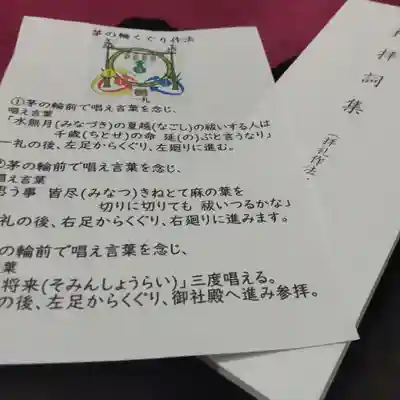 茅の輪くぐり作法
一礼
①茅の輪前で唱え言葉を念じ、
唱え言葉
「水無月(みなづき)の夏越(なごし)の祓いする人は
千歳(ちとせ)の命 延(の)ぶと言うなり」
一礼の後、左足からくぐり、左廻りに進む。
の輪前で唱え言葉を念じ、
唱え言葉
思う事 皆尽(みなつ)きねとて麻の葉を
切りに切りても 祓いつるかな」
礼の後、右足からくぐり、右廻りに進みます。
の輪前で唱え言葉を念じ、
葉
将来(そみんしょうらい)」三度唱える。
の後、左足からくぐり、御社殿へ進み参拝。
拝詞集
(拝礼作法・